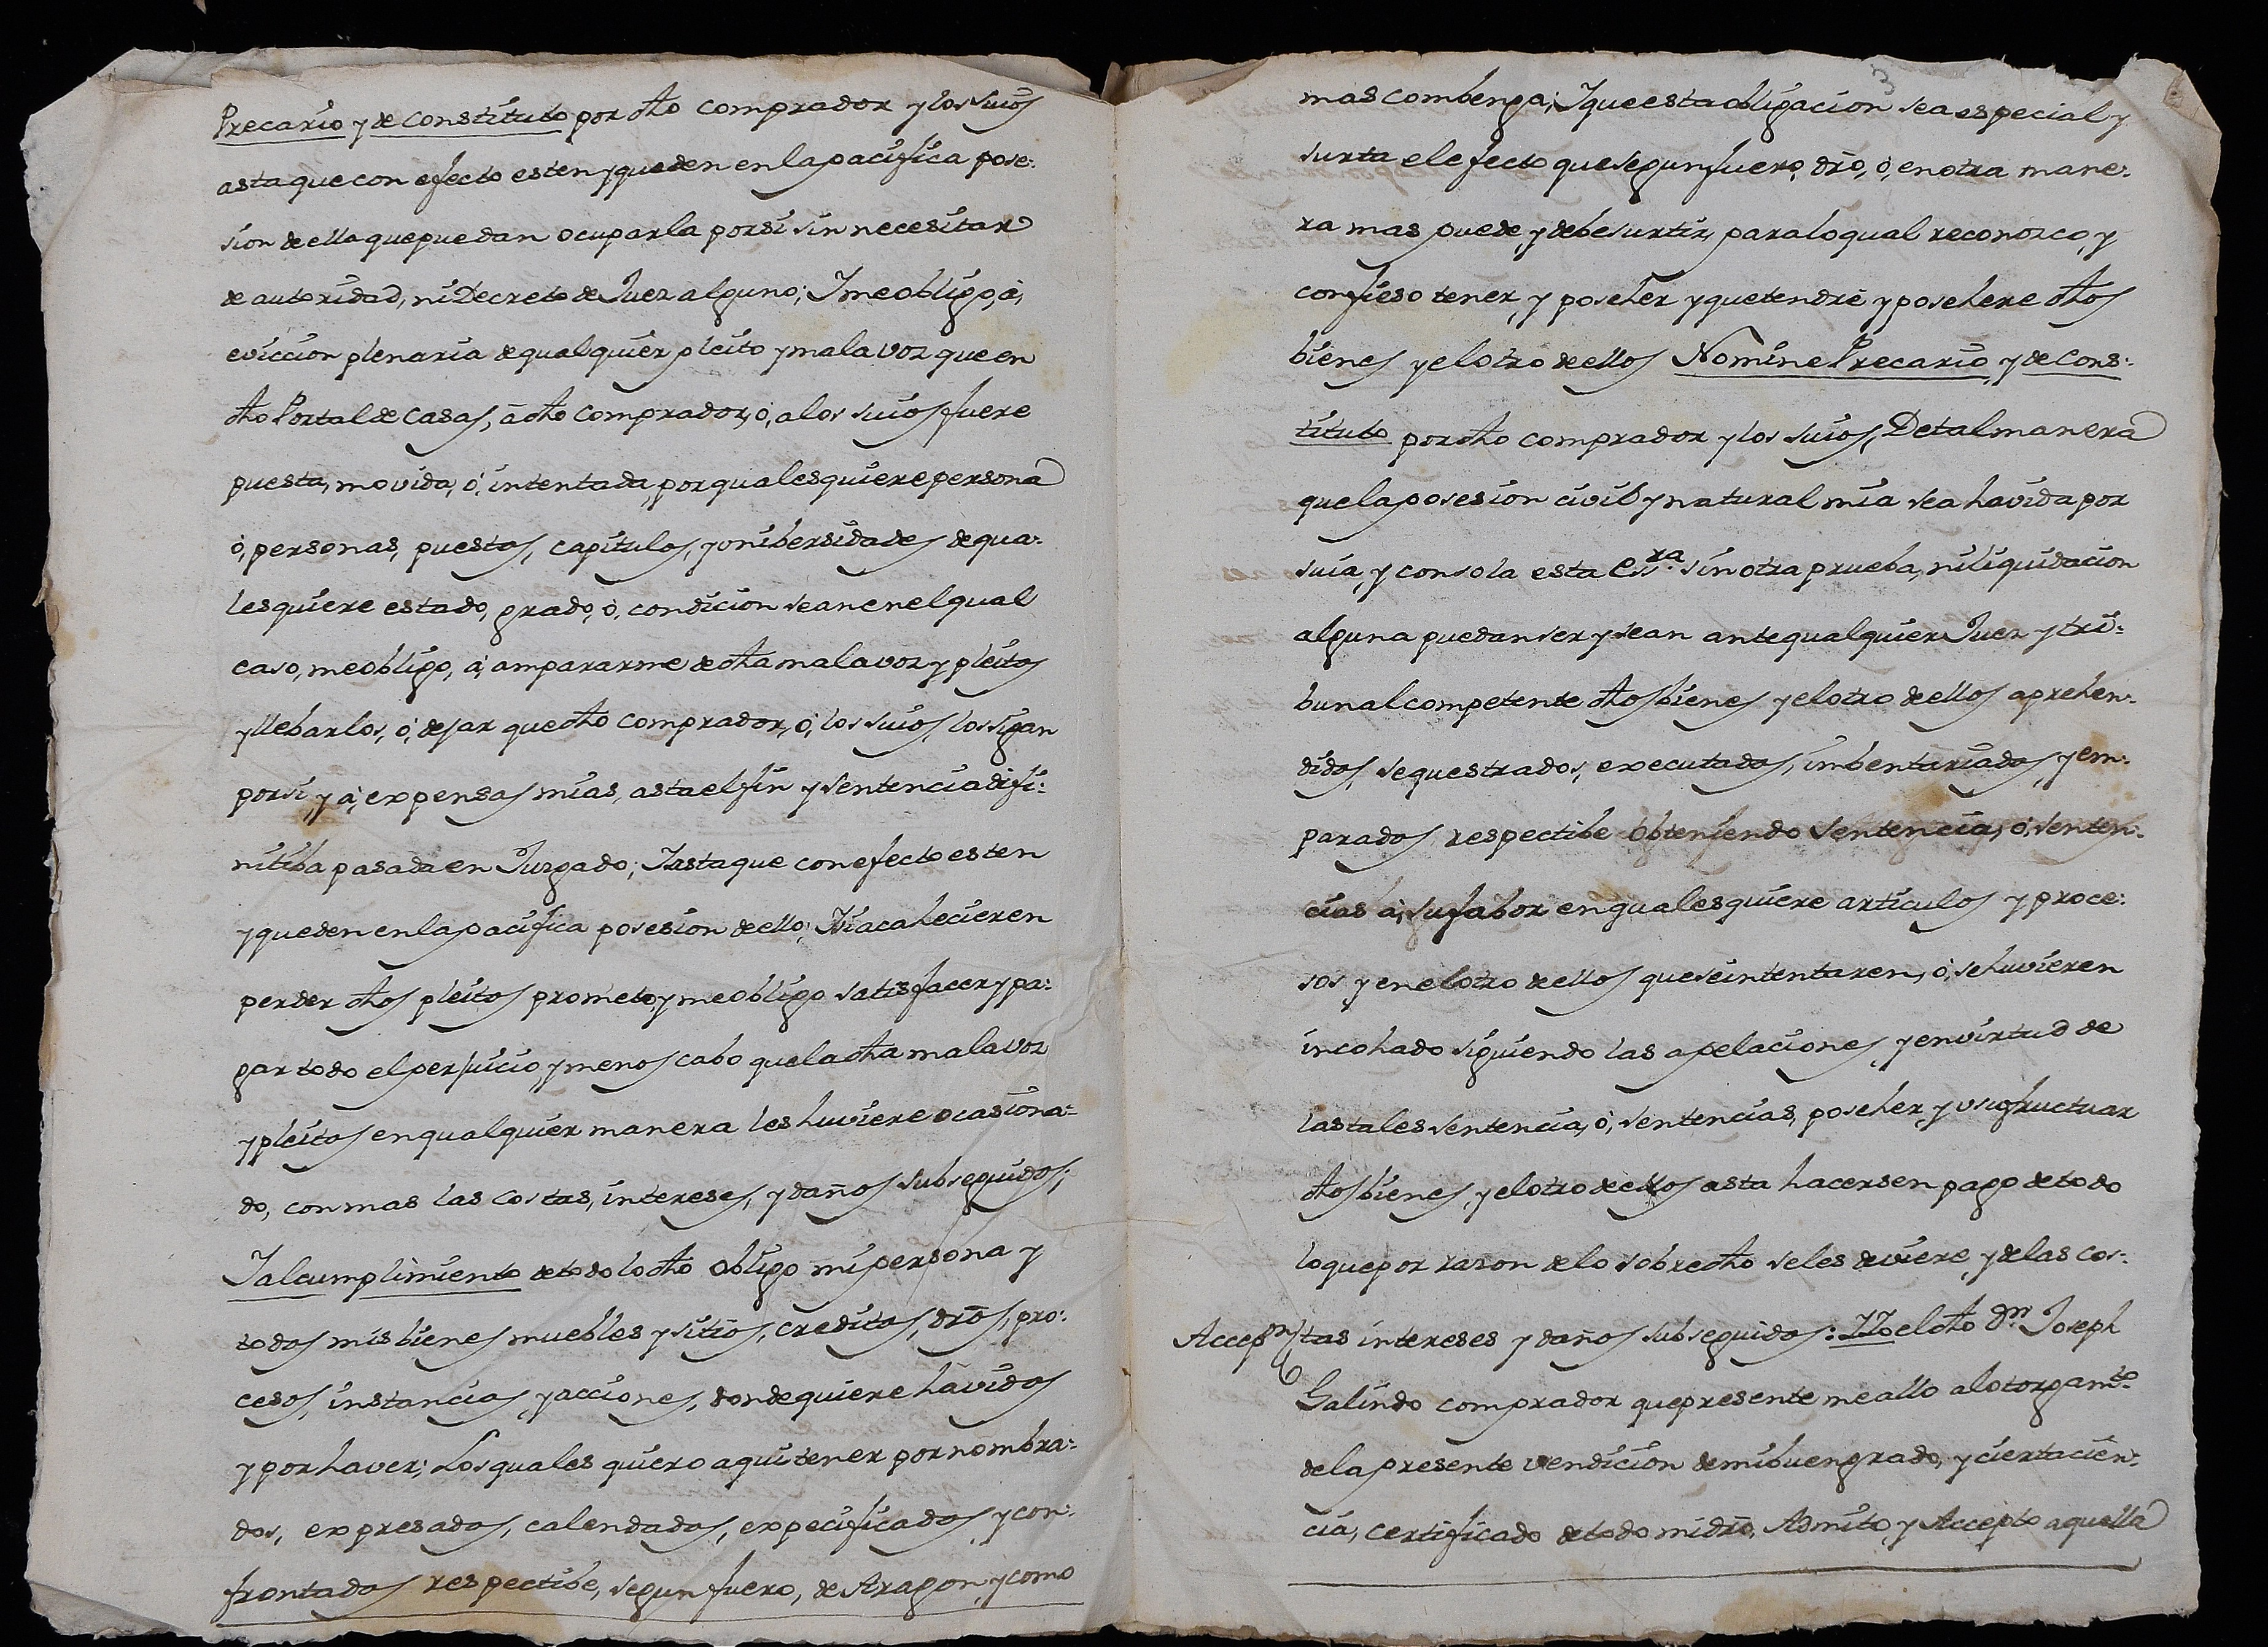 Precario y de constituto por dho comprador y los suios
asta que con efecto esten y queden en la pacifica pose:
sion de ella que puedan ocuparla por si sin necesitar
de autoridad, ni Decreto de Juez alguno; Y me obligo, á,
eviccion plenaria de qualquier pleito y mala voz que en
dho Portal de Casas, á dho comprador, ó, a los suios fuere
puesta, movida, ó, intentada, por qualesquiere persona
ó, personas, puestos, capitulos, y vnibersidades de qua:
lesquiere estado, grado, ó, condicion sean en el qual
caso, me obligo, á, ampararme de dha mala voz y pleitos
y llebarlos, ó, dejar que dho comprador, ó, los suios, los sigan
por si, y á, expensas mias, asta el fin y sentencia difi:
nitiba pasada en Juzgado; Y asta que con efecto esten
y queden en la pacifica posesion de ello; Y si acahecieren
perder dhos pleitos prometo, y me obligo satisfacer y pa:
gar todo el perjuicio, y menos cabo que la dha mala voz
y pleitos en qualquier manera les huviere ocasiona:
do, con mas las costas, intereses, y daños subseguidos;
Y al cumplimiento de todo lo dho obligo mi persona y
todos mis bienes muebles y sitios, creditos, dros, pro:
cesos, instancias, y acciones, donde quiere havidos
y por haver; Los quales quiero aqui tener por nombra:
dos, expresados, calendados, expecificados y con:
frontados respectibe, segun fuero, de Aragon, y como
3
mas combenga; Y que esta obligacion sea especial y
surta el efecto que segun fuero, dro, ó, en otra mane:
ra mas puede, y debe surtir, para lo qual reconozco, y
confieso tener, y posehèr y que tendrè y posehere dhos
bienes y el otro de ellos Nomine Precario, y de Cons:
tituto por dho comprador y los suios, De tal manera
que la posesion civil y natural mia sea havida por
suia, y con sola esta Essra. sin otra prueba, ni liquidacion
alguna puedan ser y sean ante qualquier Juez y tri:
bunal competente dhos bienes y el otro de ellos aprehen:
didos, sequestrados, executados, imbentariados, y em:
parados respectibe obteniendo sentencia, ó, senten:
cias á, su fabor en qualesquiere articulos y proce:
sos y en el otro de ellos que se intentaren, ó, se huvieren
incohado siguiendo las apelaciones, y en virtud de
las tales sentencia, ó, sentencias, posehèr, y vsufructuar
dhos bienes, y el otro de ellos asta hacersen pago de todo
lo que por razon de lo sobredho se les deviere, y de las cos:
Accepn tas intereses y daños subseguidos: YYo el dho Dn Joseph
Galindo comprador que presente me allo al otorgamto
de la presente vendicion de mi buen grado, y cierta cien:
cia, certificado de todo mi dro, Admito, y Accepto aquella